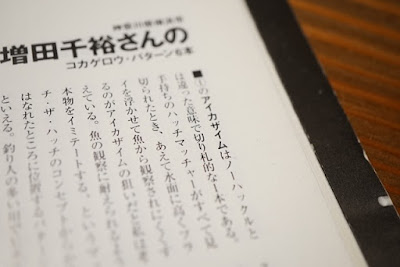 神奈川県横浜市
増田千裕さんの
コカゲロウ・パターン6本
■1のアイカザイムはノーハックルと
は違った意味で切り札的な1本である。
手持ちのハッチマッチャーがすべて見
切られたとき、あえて水面に高くフラ
イを浮かせて魚から観察されにくくす
るのがアイカザイムの狙いだと私は考
えている。魚の観察に耐えられるよう
本物をイミテートする、というマ
チ・ザ・ハッチのコンセプトか
はなれたところに位置するパター
といえる。釣り人の